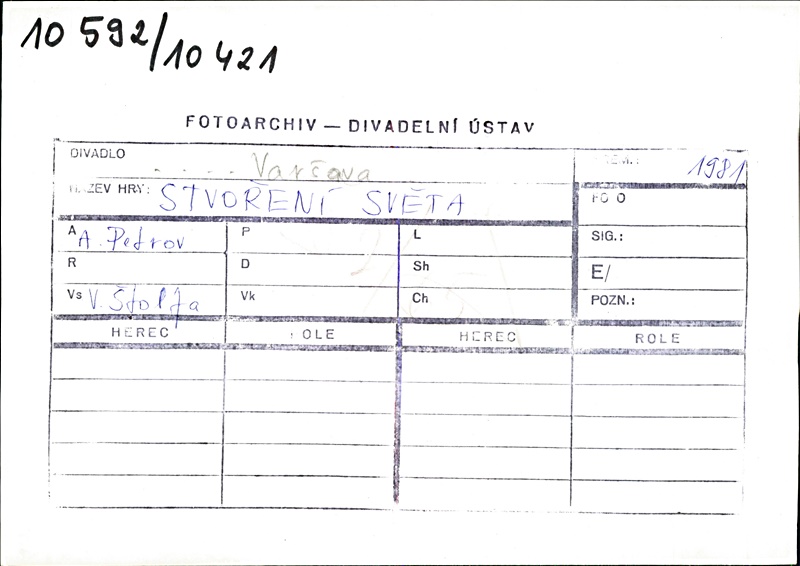 10 592/10 421
FOTOARCHIV — DIVADELNÍ ÚSTAV
DIVADLO Varšava
1981
NÁZEV HRY: STVOŘENÍ SVĚTA
FOTO
A A. Petrov P L SIG.:
R D Sh E/
Vs V. Štolfa Vk Ch POZN.:
HEREC ROLE HEREC ROLE